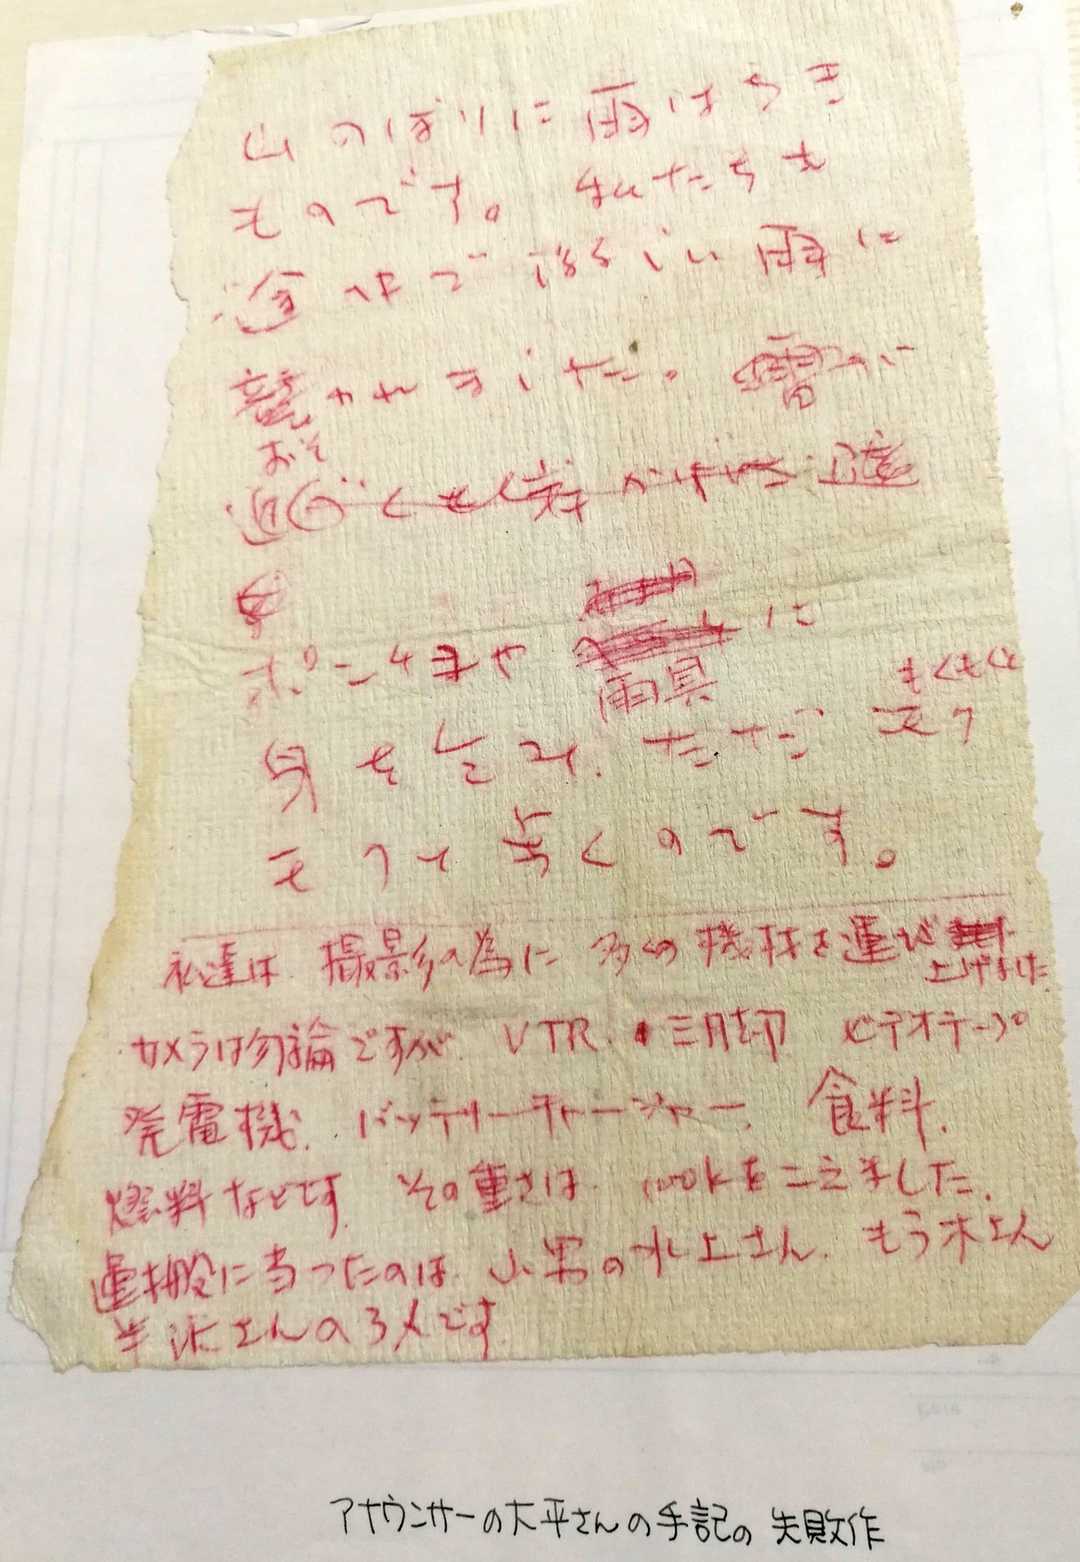 山のぼりに雨はつき
ものです。私たちも
途中で激しい雨に
襲われました。雷
おそ
近く
ポンチョや
に
雨具
もくもくと
身を包み、ただ
もって歩くのです。
私達は 撮影の為に 多くの機材を運び
上げました
カメラは勿論ですが、VTR、三脚 ビデオテープ
発電機、バッテリーチャージャー、食料、
燃料などです。その重さは、100kをこえました。
運搬に当ったのは、山男の水上さん、もう木さん
半沢さんの3人です。
アナウンサーの大平さんの手記の 失敗作